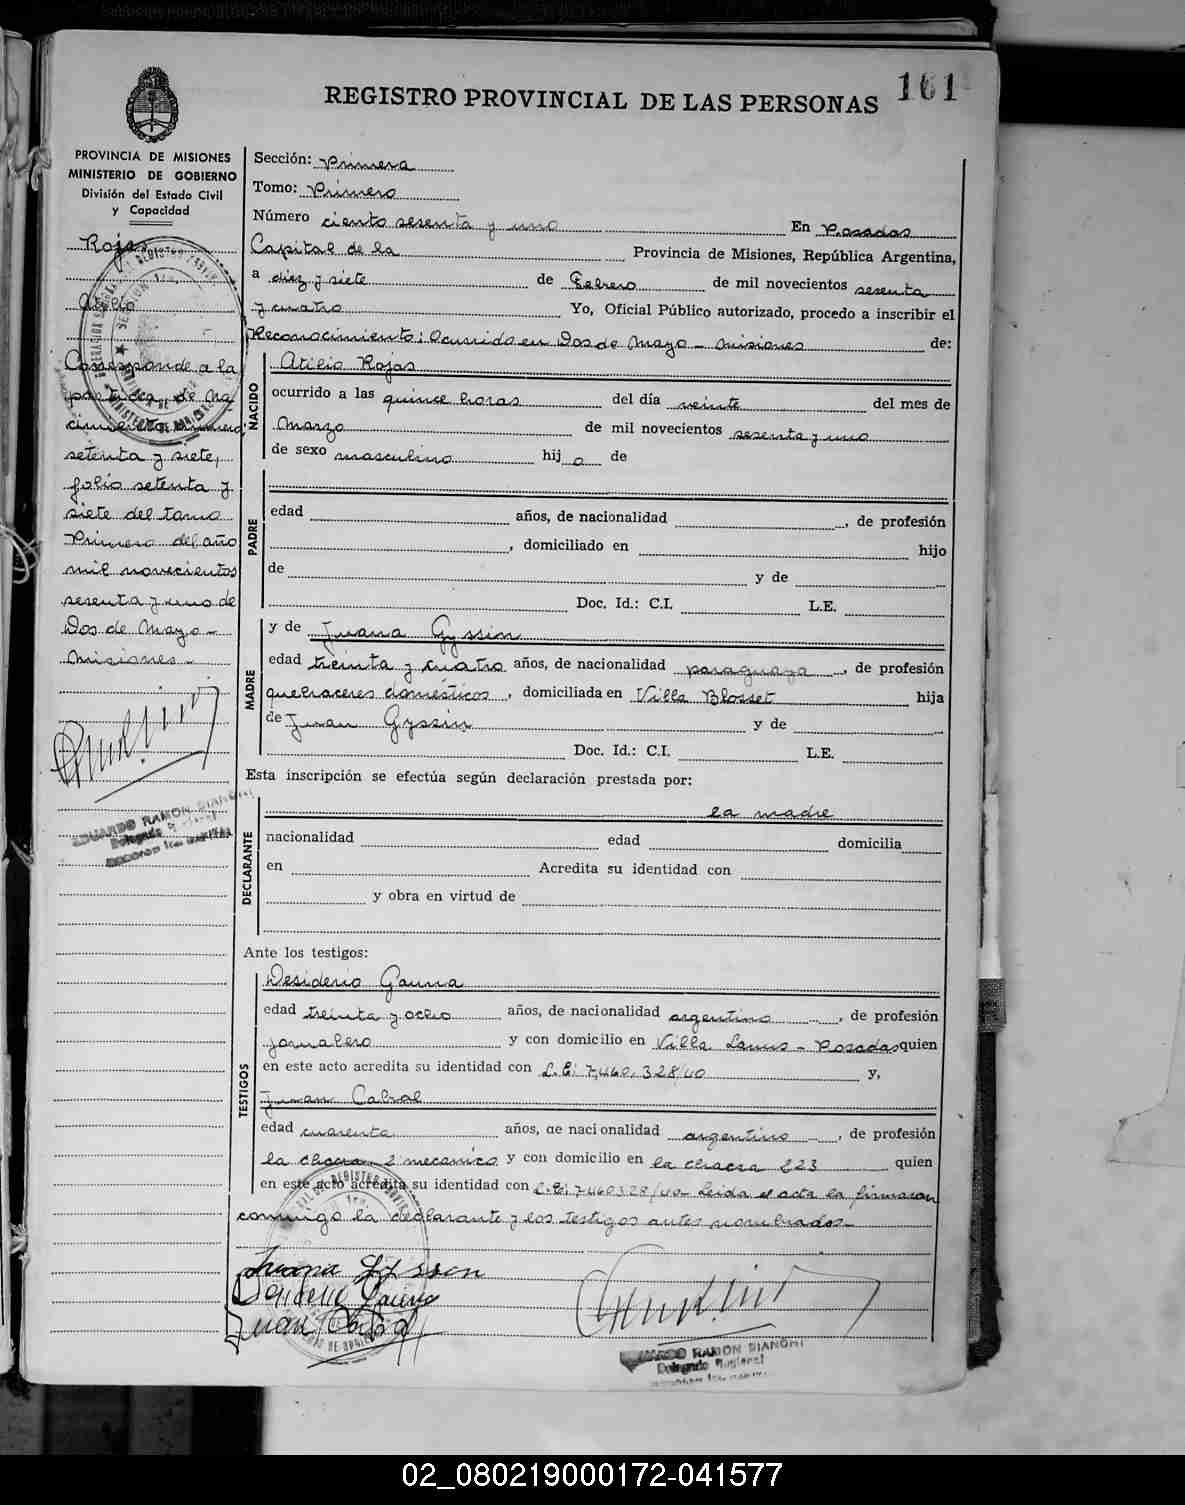 REGISTRO PROVINCIAL DE LAS PERSONAS
161
PROVINCIA DE MISIONES
MINISTERIO DE GOBIERNO
División del Estado Civil
y Capacidad
Rojas
Atilio
Corresponde a la
partida de Na
cimiento número
setenta y siete,
folio setenta y
siete del tomo
Primero del año
mil novecientos
sesenta y uno de
Dos de Mayo -
Misiones -
EDUARDO RAMON BIANCHI
Delegado Regional
Sección: Primera
Tomo: Primero
Número ciento sesenta y uno En Posadas
Capital de la Provincia de Misiones, República Argentina,
a diez y siete de Febrero de mil novecientos sesenta
y cuatro Yo, Oficial Público autorizado, procedo a inscribir el
Reconocimiento: Ocurrido en Dos de Mayo - Misiones de:
NACIDO
Atilio Rojas
ocurrido a las quince horas del día veinte del mes de
Marzo de mil novecientos sesenta y uno
de sexo masculino hijo de
PADRE
edad años, de nacionalidad , de profesión
, domiciliado en hijo
de y de
Doc. Id.: C.I. L.E.
MADRE
y de Juana Gyssin
edad treinta y cuatro años, de nacionalidad paraguaya, de profesión
quehaceres domésticos, domiciliada en Villa Blosset hija
de Juan Gyssin y de
Doc. Id.: C.I. L.E.
Esta inscripción se efectúa según declaración prestada por:
DECLARANTE
la madre
nacionalidad edad domicilia
en Acredita su identidad con
y obra en virtud de
Ante los testigos:
TESTIGOS
Desiderio Gauna
edad treinta y ocho años, de nacionalidad argentino, de profesión
jornalero y con domicilio en Villa Lanus - Posadas quien
en este acto acredita su identidad con L.E: 7,460,328/40 y,
Juan Cabral
edad cuarenta años, de nacionalidad argentino, de profesión
la chacra 2 mecanico y con domicilio en la chacra 223 quien
en este acto acredita su identidad con L.E: 7460328/40- Leida el acta la firmaron
conmigo la declarante y los testigos antes nombrados-
Juana Gysson
Desiderio Gauna
Juan Cabral
EDUARDO RAMON BIANCHI
Delegado Regional
02_080219000172-041577